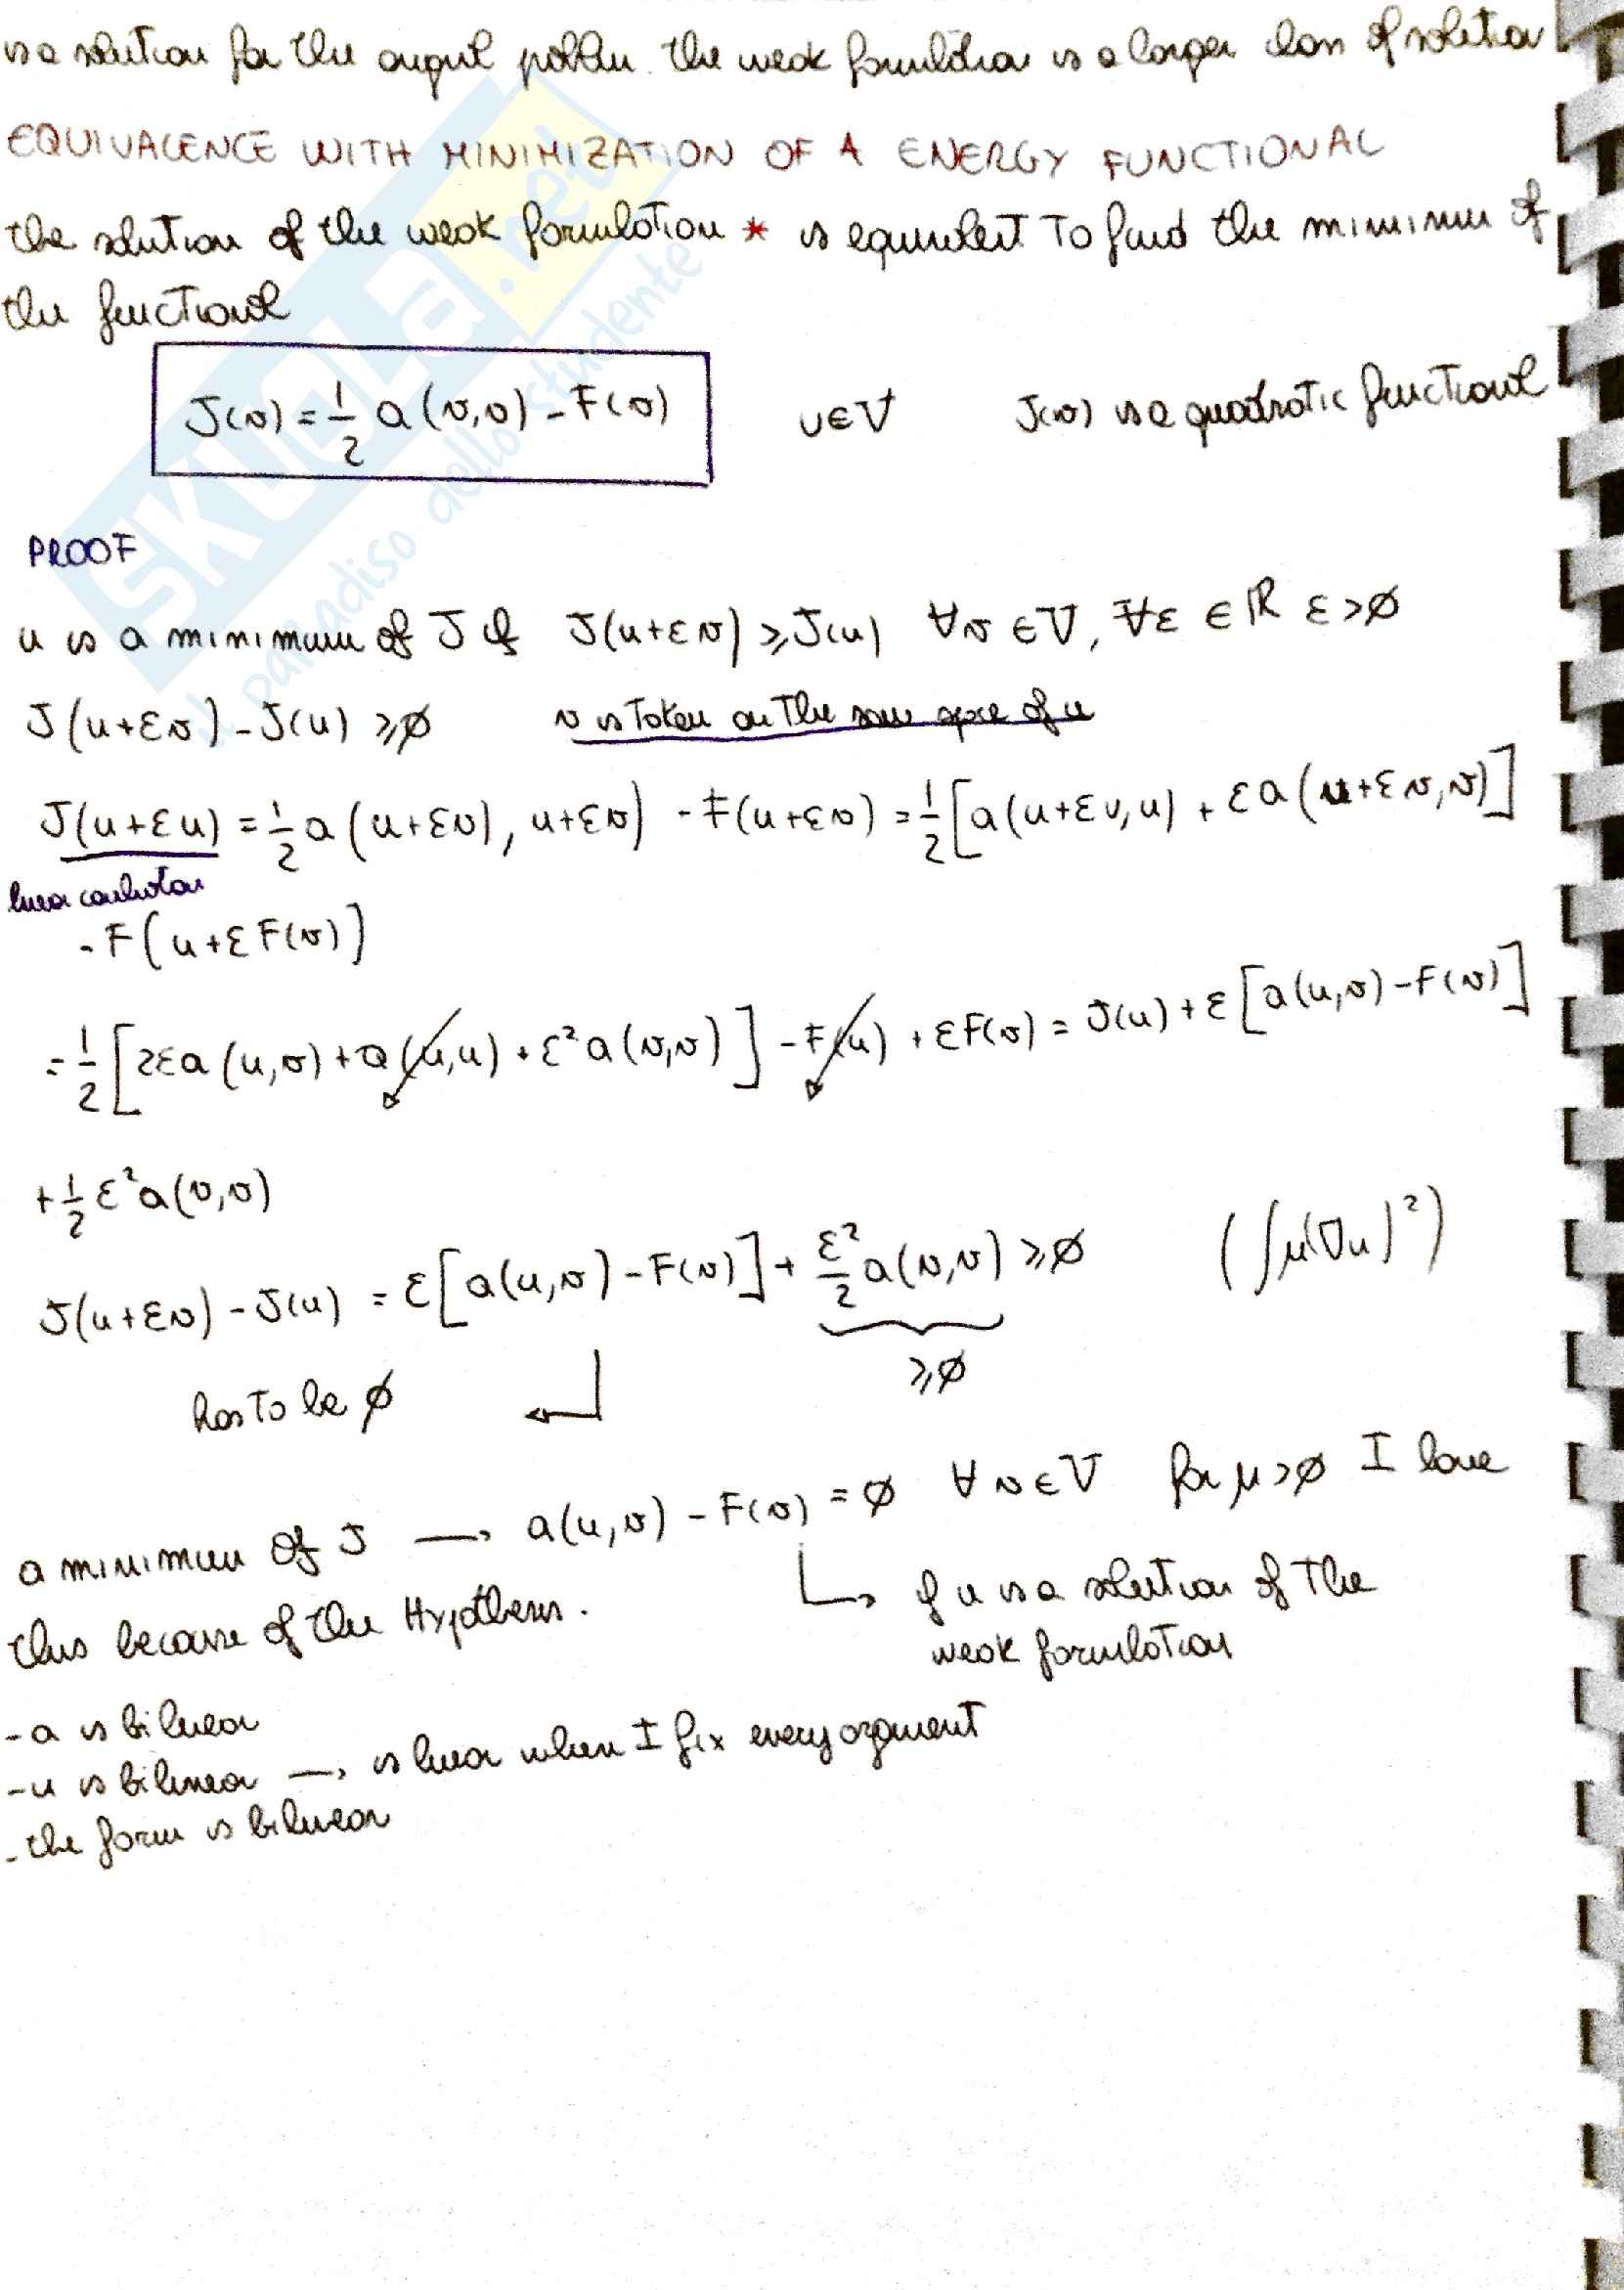 is a solution for the original problem. The weak formulation is a larger class of solution
EQUIVALENCE WITH MINIMIZATION OF A ENERGY FUNCTIONAL
the solution of the weak formulation * is equivalent to find the minimum of
the functional
J(v) = 1/2 a(v,v) - F(v) v∈V J(v) is a quadratic functional
PROOF
u is a minimum of J if J(u+εv) ≥ J(u) ∀v ∈ V, ∀ε ∈ ℝ ε>∅
J(u+εv) - J(u) ≥ ∅ v is taken on the same space of u
J(u+εu) = 1/2 a(u+εv), u+εv) - F(u+εv) = 1/2 [a(u+εv,u) + εa(u+εv,v)]
linear combination
- F[u+εF(v)]
= 1/2 [2εa(u,v) + a(u,u) + ε²a(v,v)] - F(u) + εF(v) = J(u) + ε[a(u,v) - F(v)]
+ 1/2 ε²a(v,v)
J(u+εv) - J(u) = ε[a(u,v) - F(v)] + ε²/2 a(v,v) ≥ ∅ (∫μ(∇u)²)
≥∅
has to be ∅
a minimum of J → a(u,v) - F(v) = ∅ ∀ v∈V for μ>∅ I have
this because of the Hypothesis. if u is a solution of the
weak formulation
- a is bilinear
- u is bilinear → is linear when I fix every argument
- the form is bilinear
SKUOLA.net
il paradiso dello studente